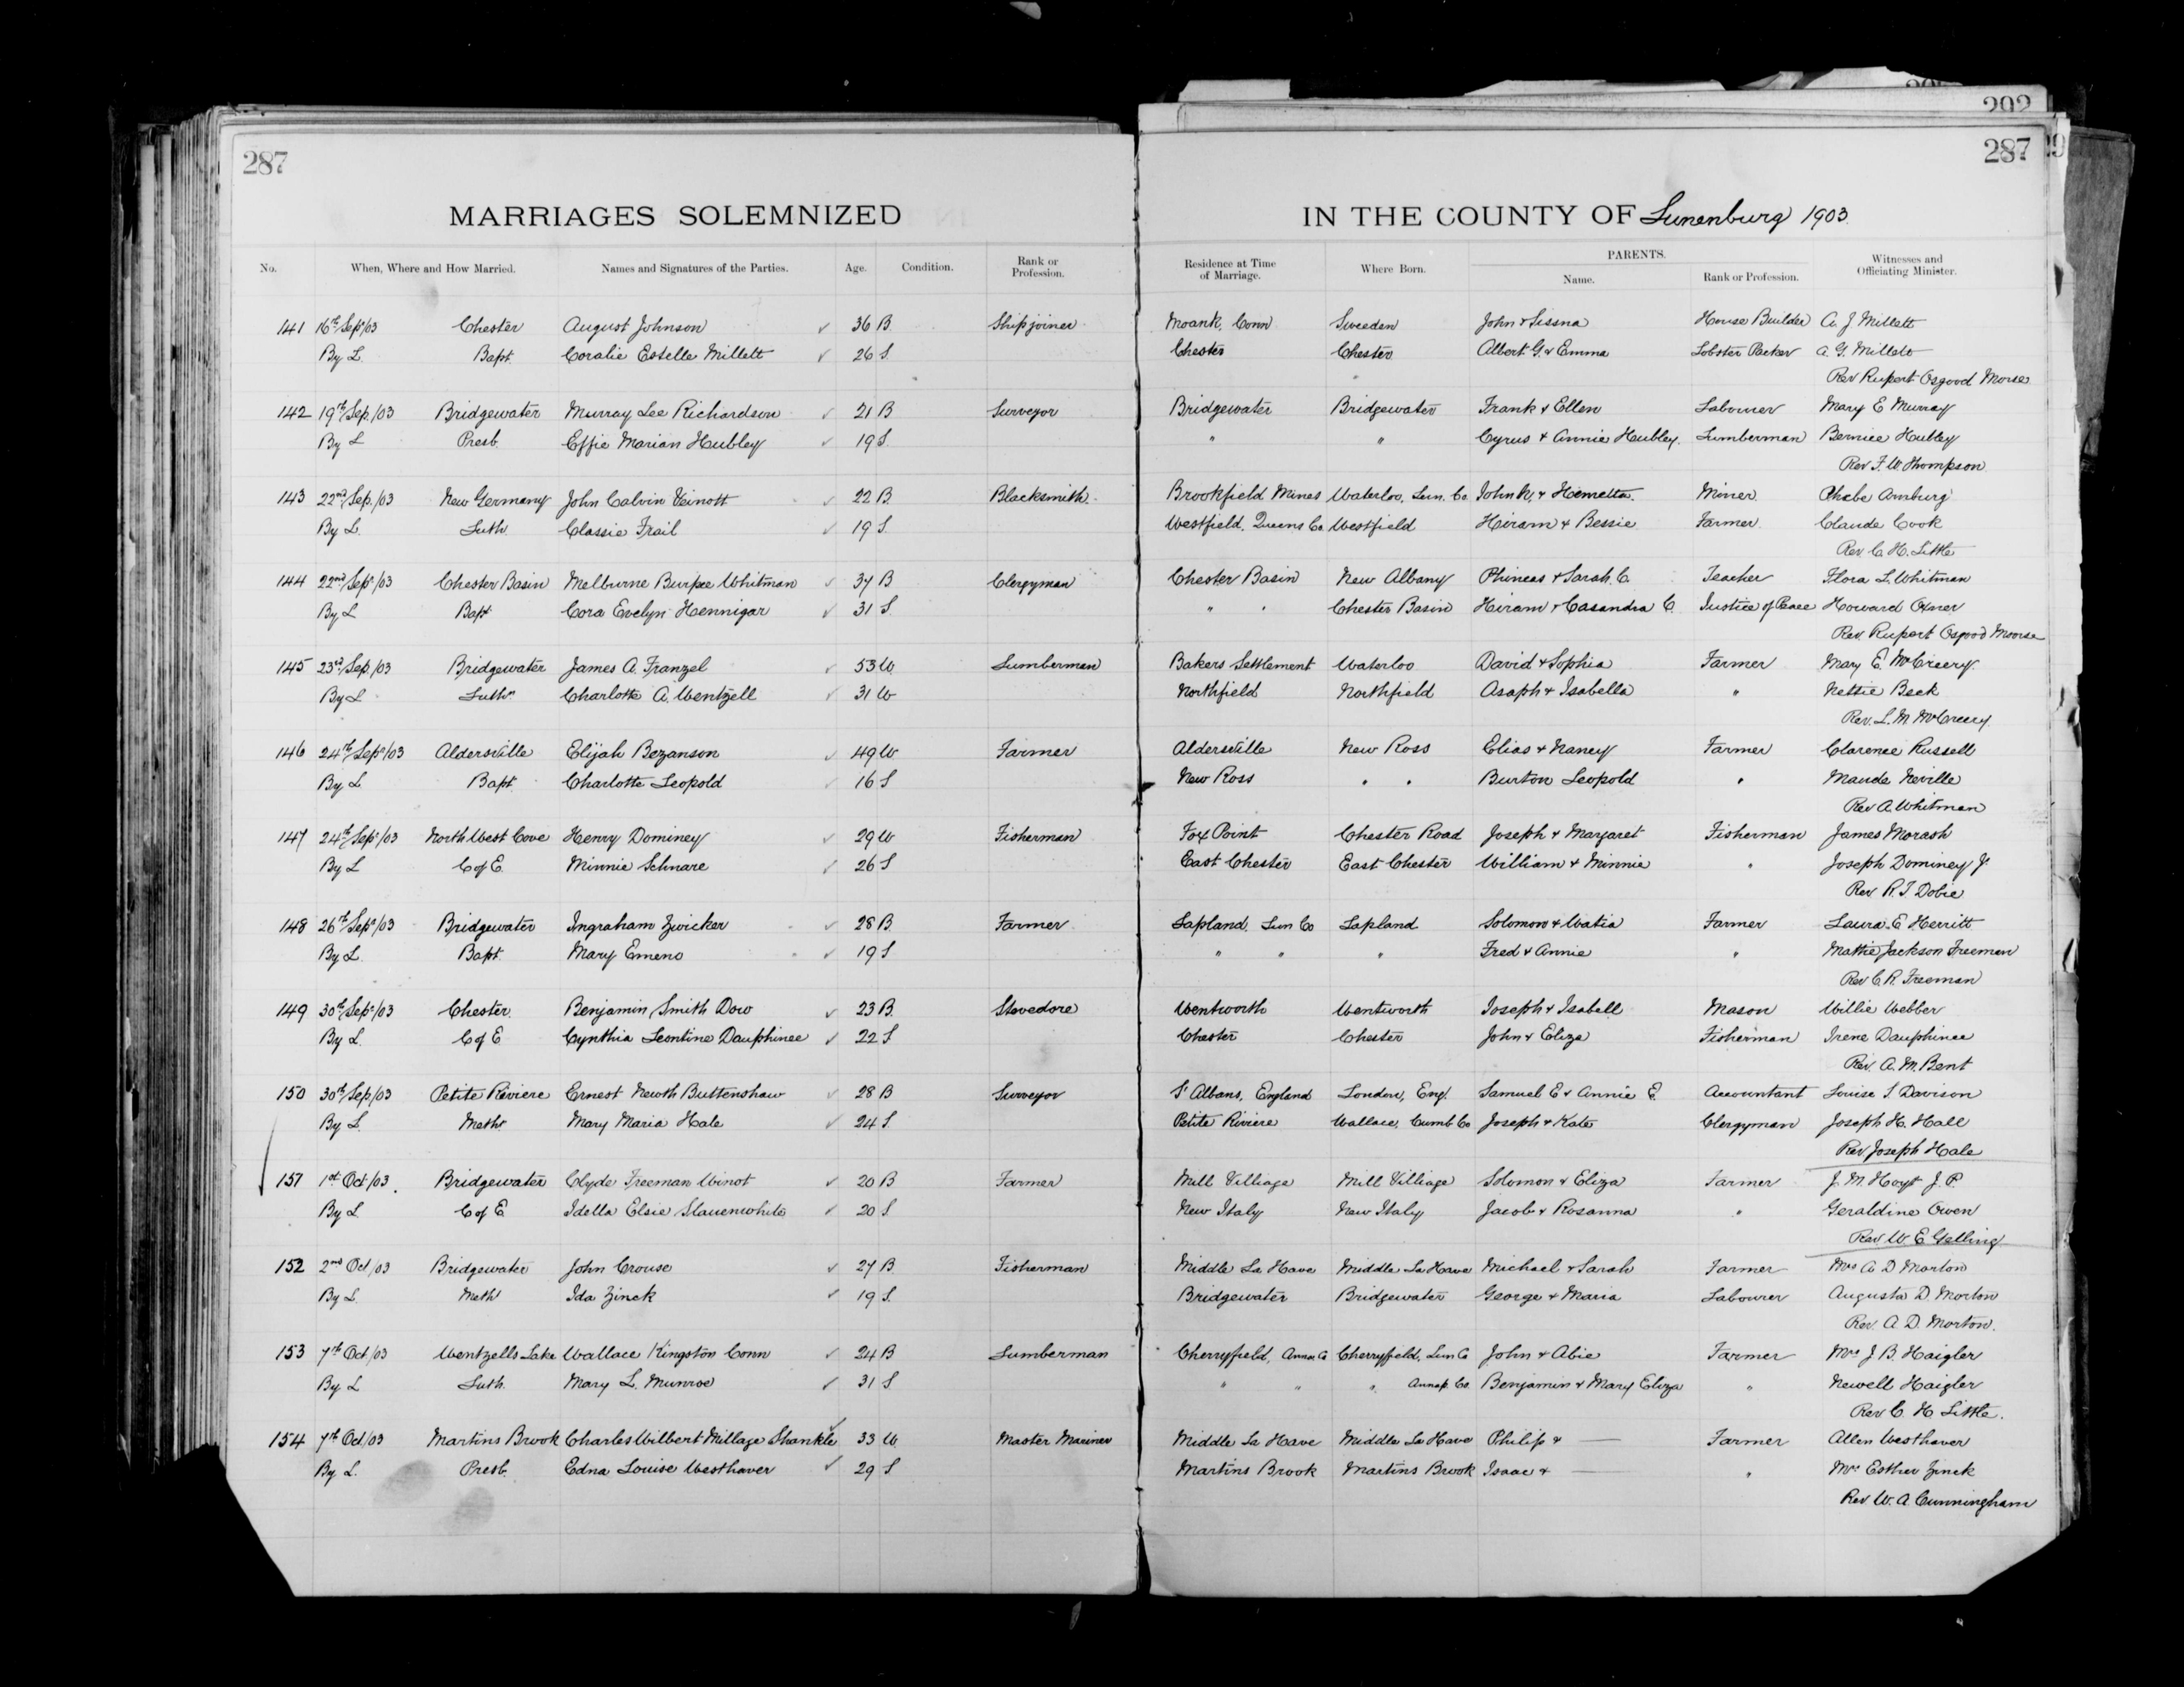 292
287
287
MARRIAGES SOLEMNIZED IN THE COUNTY OF Lunenburg 1903
No. When, Where and How Married. Names and Signatures of the Parties. Age. Condition. Rank or Profession. Residence at Time of Marriage. Where Born. PARENTS. Name. Rank or Profession. Witnesses and Officiating Minister.
141 16th Sep/03 Chester August Johnson 36 B. Shipjoiner Moank, Conn Sweeden John & Sissna House Builder A. J Millett
By L. Bapt. Coralie Estelle Millett 26 S. Chester Chester Albert G. & Emma Lobster Packer A. G. Millett
Rev Rupert Osgood Morse
142 19th Sep./03 Bridgewater Murray Lee Richardson 21 B Surveyor Bridgewater Bridgewater Frank & Ellen Labourer Mary E Murray
By L Presb. Effie Marian Hubley 19 S. " " Cyrus & Annie Hubley. Lumberman Bernice Hubley
Rev F. W. Thompson
143 22nd Sep./03 New Germany John Calvin Veinott 22 B. Blacksmith. Brookfield Mines Waterloo, Lun. Co. John N, & Henretta. Miner Phebe Amburg
By L. Luth. Classie Trail 19 S. Westfield, Queens Co. Westfield Hiram & Bessie Farmer Claude Cook
Rev C. H. Little
144 22nd Sep/03 Chester Basin Melburne Burpee Whitman 37 B Clergyman Chester Basin New Albany Phineas & Sarah. C. Teacher Flora L. Whitman
By L Bapt Cora Evelyn Hennigar 31 S. " " Chester Basin Hiram & Casandra C. Justice of Peace Howard Oxner
Rev. Rupert Osgood Moorse
145 23rd Sep./03 Bridgewater James A. Franzel 53 W. Lumberman Bakers Settlement Waterloo David & Sophia Farmer Mary E. McCreery
By L Luthn Charlotte A. Wentzell 31 W Northfield Northfield Asaph & Isabella " Nettie Beck
Rev. L. M. McCreery
146 24th Sep/03 Aldersville Elijah Bezanson 49 W Farmer Aldersville New Ross Elias & Nancy Farmer Clarence Russell
By L Bapt. Charlotte Leopold 16 S New Ross " " Burton Leopold " Maude Neville
Rev A. Whitman
147 24th Sep/03 North West Cove Henry Dominey 29 W Fisherman Fox Point Chester Road Joseph & Margaret Fisherman James Morash
By L C of E. Minnie Schnare 26 S East Chester East Chester William & Minnie " Joseph Dominey Jr
Rev R. T. Dobie
148 26th Sep/03 Bridgewater Ingraham Zwicker 28 B. Farmer Lapland, Lun Co Lapland Solomon & Watia Farmer Laura E Herritt
By L. Bapt. Mary Emeno 19 S " " " Fred & Annie " Mattie Jackson Freeman
Rev C. R. Freeman
149 30th Sep/03 Chester Benjamin Smith Dow 23 B. Stovedore Wentworth Wentworth Joseph & Isabell Mason Willie Webber
By L. C of E Cynthia Leontine Dauphinee 22 S Chester Chester John & Eliza Fisherman Irene Dauphinee
Rev. A. M. Bent
150 30th Sep/03 Petite Riviere Ernest Newth Buttenshaw 28 B Surveyor St Albans, England London, Eng. Samuel E & Annie E. Accountant Louise S. Davison
By L. Meth. Mary Maria Hale 24 S. Petite Riviere Wallace, Cumb Co Joseph & Kate Clergyman Joseph H. Hall
Rev Joseph Hale
151 1st Oct/03. Bridgewater Clyde Freeman Winot 20 B Farmer Mill Villiage Mill Villiage Solomon & Eliza Farmer J. M. Hoyt J. P.
By L. C of E Idella Elsie Slauenwhite 20 S New Italy New Italy Jacob & Rosanna " Geraldine Owen
Rev. W. E. Gelling
152 2nd Oct/03 Bridgewater John Crouse 27 B Fisherman Middle La Have Middle La Have Michael & Sarah Farmer Mrs A D Morton
By L. Meth Ida Zinck 19 S. Bridgewater Bridgewater George & Maria Labourer Augusta D. Morton
Rev. A. D. Morton.
153 7th Oct/03 Wentzells Lake Wallace Kingston Conn 24 B Lumberman Cherryfield, Anna Co Cherryfield, Lun Co John & Abie Farmer Mrs J. B. Haigler
By L Luth. Mary L. Munroe 31 S. " " " Annap. Co. Benjamin & Mary Eliza " Newell Haigler
Rev C. H Little.
154 7th Oct/03 Martins Brook Charles Wilbert Millage Shankle 33 W. Master Mariner Middle La Have Middle La Have Philip & — Farmer Allen Westhaver
By L. Presb. Edna Louise Westhaver 29 S. Martins Brook Martins Brook Isaac & — " Mrs Esther Zinck
Rev W. A. Cunningham